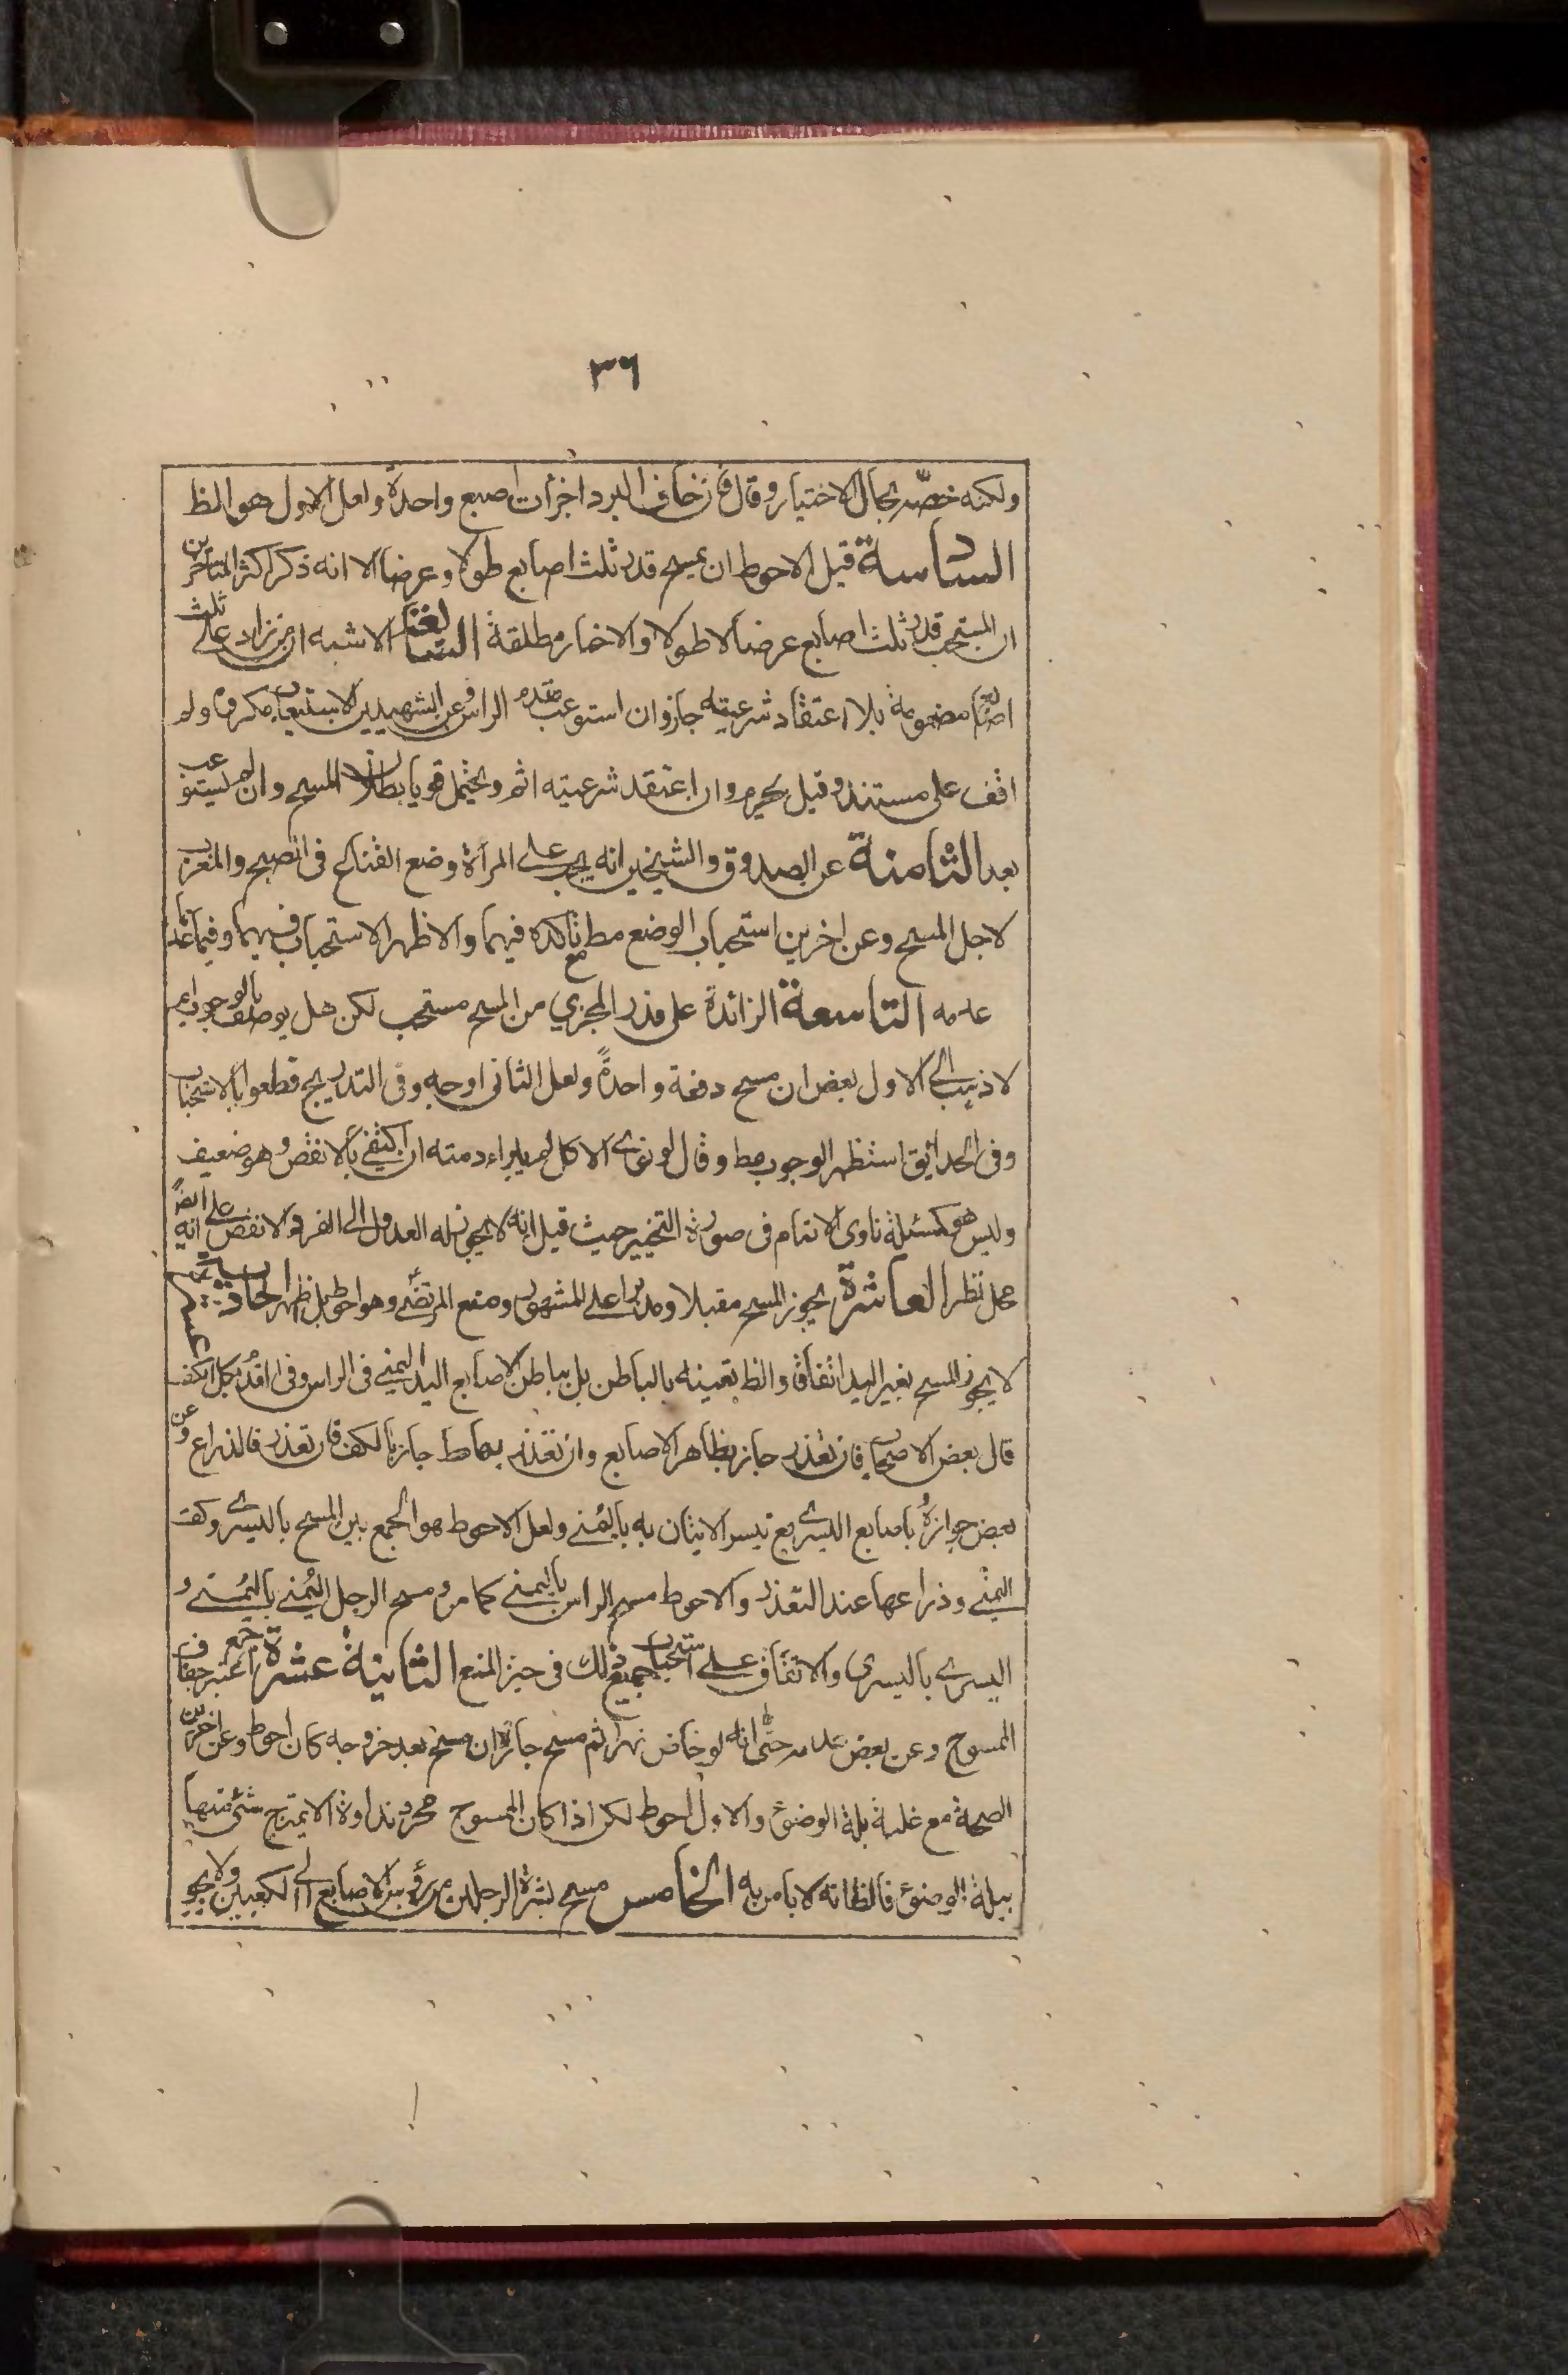 ٣٦
ولكنه خصّه بحال الاختيار وقال فان خاف البرد اجزأت اصبع واحدة ولعل الاول هو الظ
السادسة قيل الاحوط ان يمسح قدر ثلث اصابع طولا وعرضا الا انه ذكر اكثر المتأخرين
ان المستحب قدر ثلث اصابع عرضا لا طولا والاخبار مطلقة السابعة الاشبه ان من زاد على ثلث
اصابع مضمومة بلا اعتقاد شرعيته جاز وان استوعب مقدم الراس وعن الشهيدين الاستيعاب مكروه ولم
اقف على مستنده وقيل يحرم وان اعتقد شرعيته اثم ويحتمل قويا بطلان المسح وان لم يستوعب
بعد الثامنة عن الصدوق والشيخين انه يجب على المرأة وضع القناع فى الصبح والمغرب
لاجل المسح وعن اخرين استحباب الوضع مط مع تاكده فيهما والاظهر الاستحباب فيهما وفيما عدا
عدمه التاسعة الزائدة على قدر المجزي من المسح مستحب لكن هل يوصف بالوجوب ام
لا ذهب الى الاول بعض ان مسح دفعة واحدةً ولعل الثانى اوجه وفى التدريج قطعوا بالاستحباب
وفى الحدائق استظهر الوجوب مط وقال لو نوى الاكل لم يبراء ذمته ان اكتفى بالانقص وهو ضعيف
وليس هو كمسئلة ناوى الاتمام فى صورة التخيير حيث قيل انه لا يجوز له العدول الى الفرد الانقص على انه ايضاً
محل نظر العاشرة يجوز المسح مقبلا ومدبرا على المشهور ومنع المرتضى وهو احوط بل اظهر الحادية عشر
لا يجوز المسح بغير اليد اتفاقا والظ تعينه بالباطن بل بباطن الاصابع اليد اليمنى فى الراس وفى القدم بكل الكف
قال بعض الاصحاب فان تعذر جاز بظاهر الاصابع وان تعذر بها ط جاز بالكف فان تعذر فالذراع وعن
بعض جوازه باصابع اليسرى مع تيسر الاتيان به باليمنى ولعل الاحوط هو الجمع بين المسح باليسرى وكف
اليمنى وذراعها عند التعذر والاحوط مسح الراس باليمنى كما مر ومسح الرجل اليُمنى باليُمنى و
اليسرى باليسرى والاتفاق على استحباب جميع ذلك فى حيز المنع الثانية عشرة اعتبر جمع جفاف
الممسوح وعن بعض عدمه حتى انه لو خاض نهرا ثم مسح جاز وان مسح بعد خروجه كان احوط وعن اخرين
الصحة مع غلبة بلة الوضوء والاول احوط لكن اذا كان الممسوح مجرد نداوة لا يمتزج شئ منها
ببلة الوضوء فالظ انه لا باس به الخامس مسح بشرة الرجلين من رؤس الاصابع الى الكعبين ولا يجو